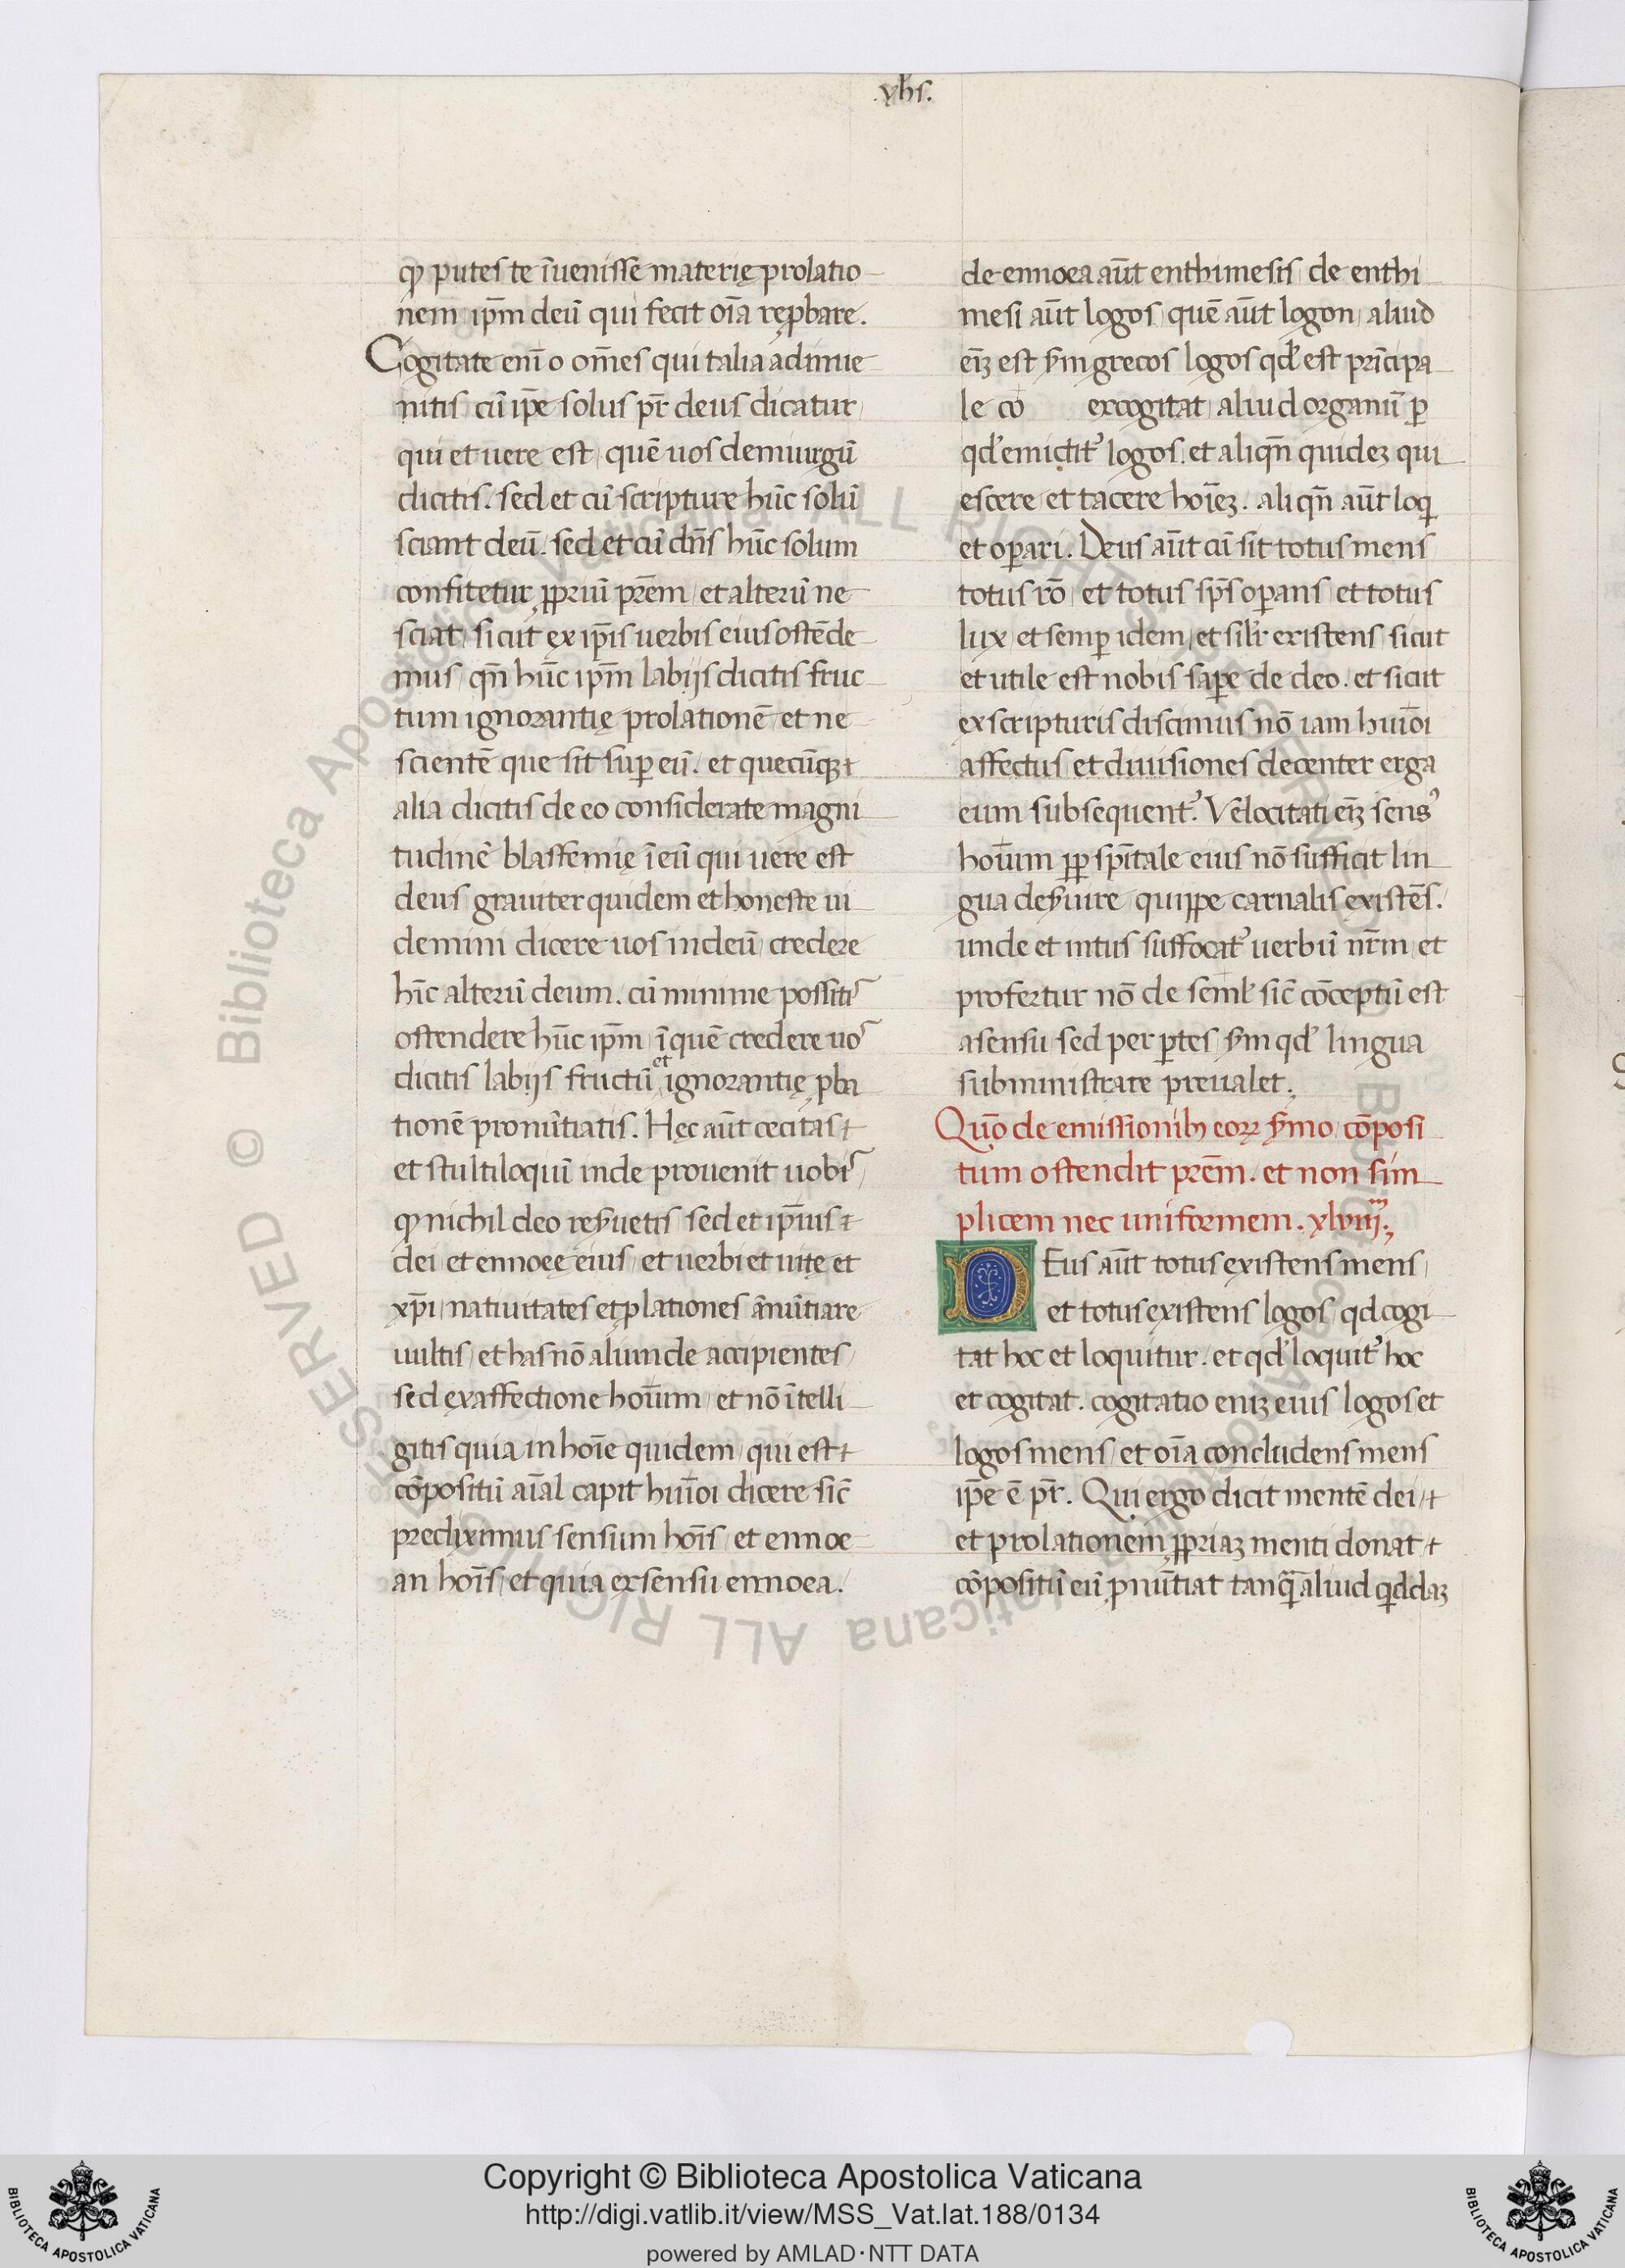 .yhs.
ꝙ putes te īuenisse materię prolatio
nem ip̄m deū qui fecit oīa rep̱bare.
Cogitate enī o om̄es qui talia adinue
nitis cū ip̄e solus pr̄ deus dicatur
qui et uere est quē uos demiurgū
dicitis. sed et cū scripture hūc solū
sciant deū. sed et cū dn̄s hūc solum
confitetur ꝓpriū prēm et alterū ne
sciat sicut ex ip̄is uerbis eius ostēde
mus qn̄ hūc ip̄m labijs dicitis fruc
tum ignorantię prolationē et ne
scientē que sit suꝑ eū. et quecūqꝫ
alia dicitis de eo considerate magni
tudinē blasfemię ī eū qui uere est
deus grauiter quidem et honeste ui
demini dicere uos in deū credere
hīc alterū deum. cū minime possitis
ostendere hūc ip̄m ī quē credere uos
dicitis labijs fructū et ignorantię ꝓba
tionē pronūtiatis. Hęc aūt cecitas
et stultiloquiū inde prouenit uobis
ꝙ nichil deo reẜuetis sed et ip̄ius
dei et ennoeę eius et uerbi et uitę et
xp̄i natiuitates et ꝓlationes ānūtiare
uultis et has nō aliunde accipientes
sed ex affectione hoīum et nō ītelli
gitis quia in hoīe quidem qui est
cōpositū aīal capit huīoi dicere sic̄
prediximus sensum hoīs et ennoe
an hoīs et quia ex sensu ennoea.
de ennoea aūt enthimesis de enthi
mesi aūt logos quē aūt logon aliud
eīꝫ est ẜm grecos logos qd' est prīcipa
le co excogitat aliud organū ꝑ
qd' emictit᾽ logos. et aliqn̄ quideꝫ qui
escere et tacere hoīeꝫ. aliqn̄ aūt loq
et oꝑari. Deus aūt cū sit totus mens
totus rō et totus sp̄s oꝑans et totus
lux et semꝑ idem et sil'r existens sicut
et utile est nobis saꝑe de deo. et sicut
ex scripturis discimus nō iam huīoi
affectus et diuisiones decenter erga
eum subsequent᾽. Velocitati eīꝫ sens᾽
hoīum ꝓp̱ spītale eius nō sufficit lin
gua deẜuire quippe carnalis existēs.
unde et intus suffocat᾽ uerbū nr̄m et
profertur nō de seml' sic̄ cōceptū est
a sensu sed per ꝑtes ẜm qd' lingua
subministrare preualet.
Quō de emissionibꝫ eoꝝ ẜmo cōposi
tum ostendit prēm. et non sim
plicem nec uniformem. xlviij.
DEus aūt totus existens mens
et totus existens logos qd cogi
tat hoc et loquitur. et qd' loquit᾽ hoc
et cogitat. cogitatio enīꝫ eius logos et
logos mens et oīa concludens mens
ip̄e ē pr̄. Qui ergo dicit mentē dei
et prolationem ꝓpriaꝫ menti donat
cōpositū eū ꝓnūtiat tanq̄ aliud qddaꝫ
© Biblioteca Apostolica Vaticana ALL RIGHTS RESERVED
Copyright © Biblioteca Apostolica Vaticana
http://digi.vatlib.it/view/MSS_Vat.lat.188/0134
powered by AMLAD·NTT DATA
BIBLIOTECA APOSTOLICA VATICANA
BIBLIOTECA APOSTOLICA VATICANA